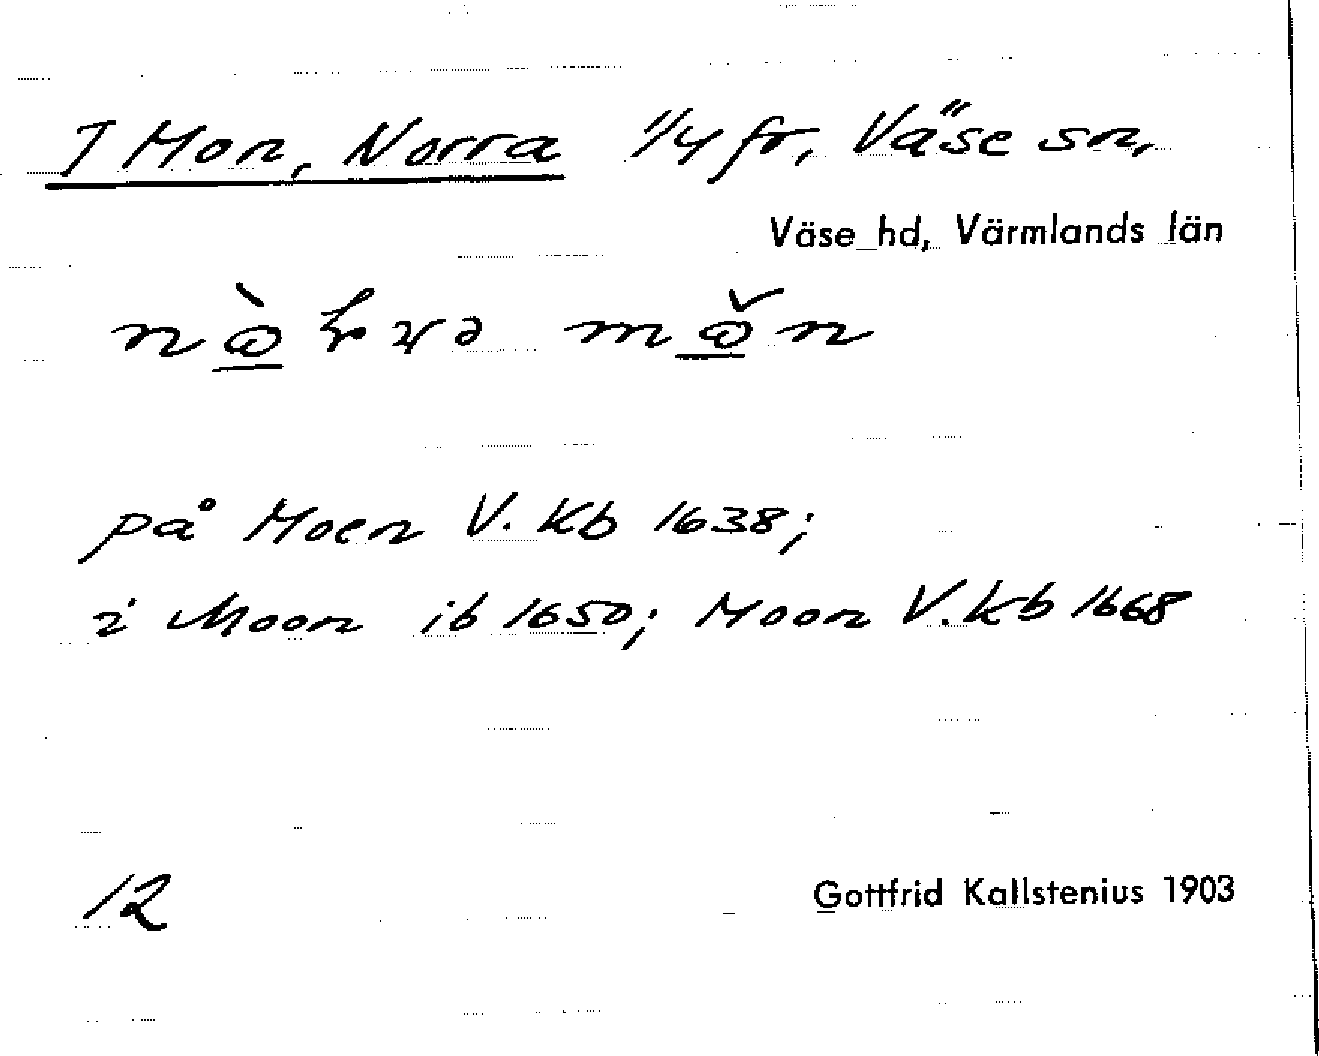 I Mon, Norra 1/4 fr, Väse sn,
Väse hd, Värmlands län
på Moen V. Kb 1638;
i Moon ib 1650; Moon V. Kb 1668
12
Gottfrid Kallstenius 1903